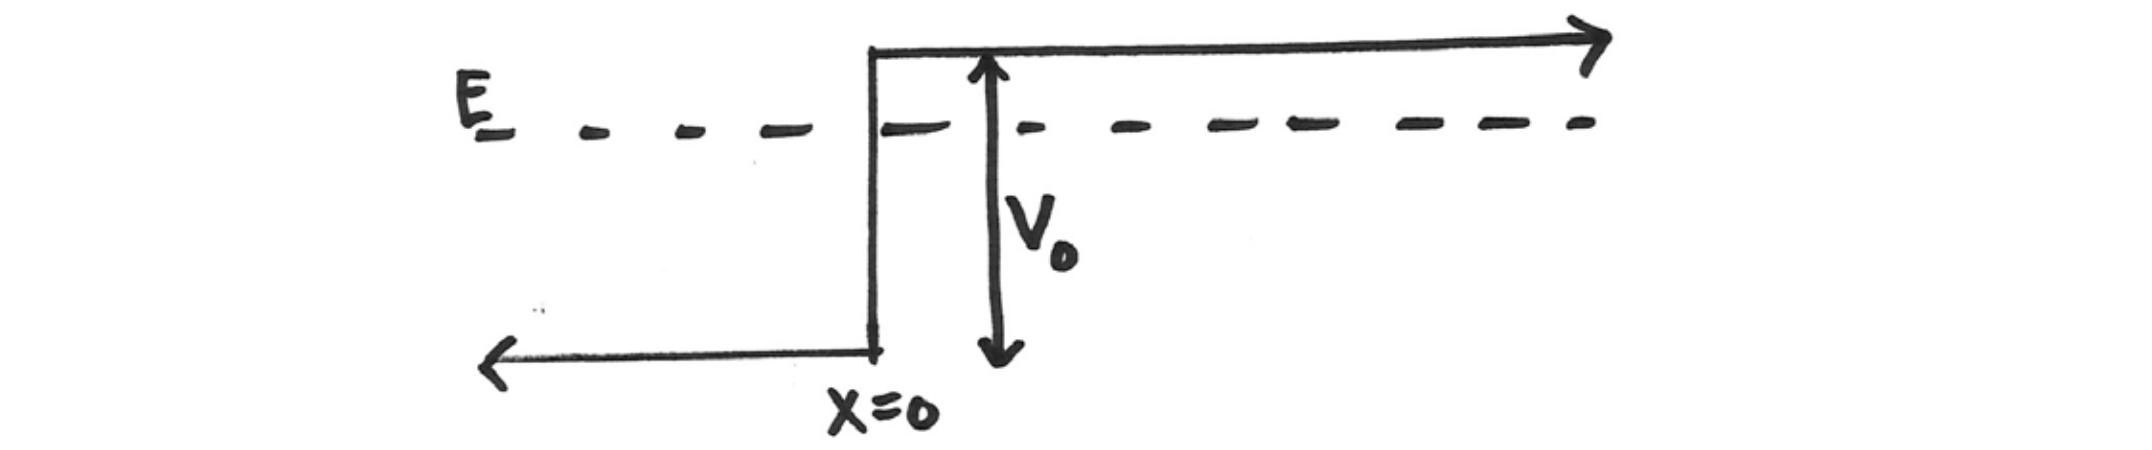 E
V₀
x=0